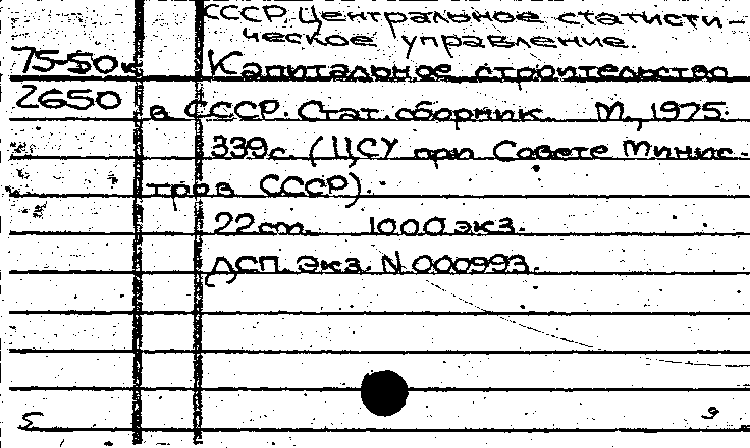 СССР. Центральное статисти-
ческое управление.
75-50к Капитальное строительство
2650 в СССР. Стат. сборник. М., 1975.
339с. (ЦСУ при Совете Минис-
тров СССР).
22см. 1000 экз.
ДСП. Экз. N 000993.
5 9